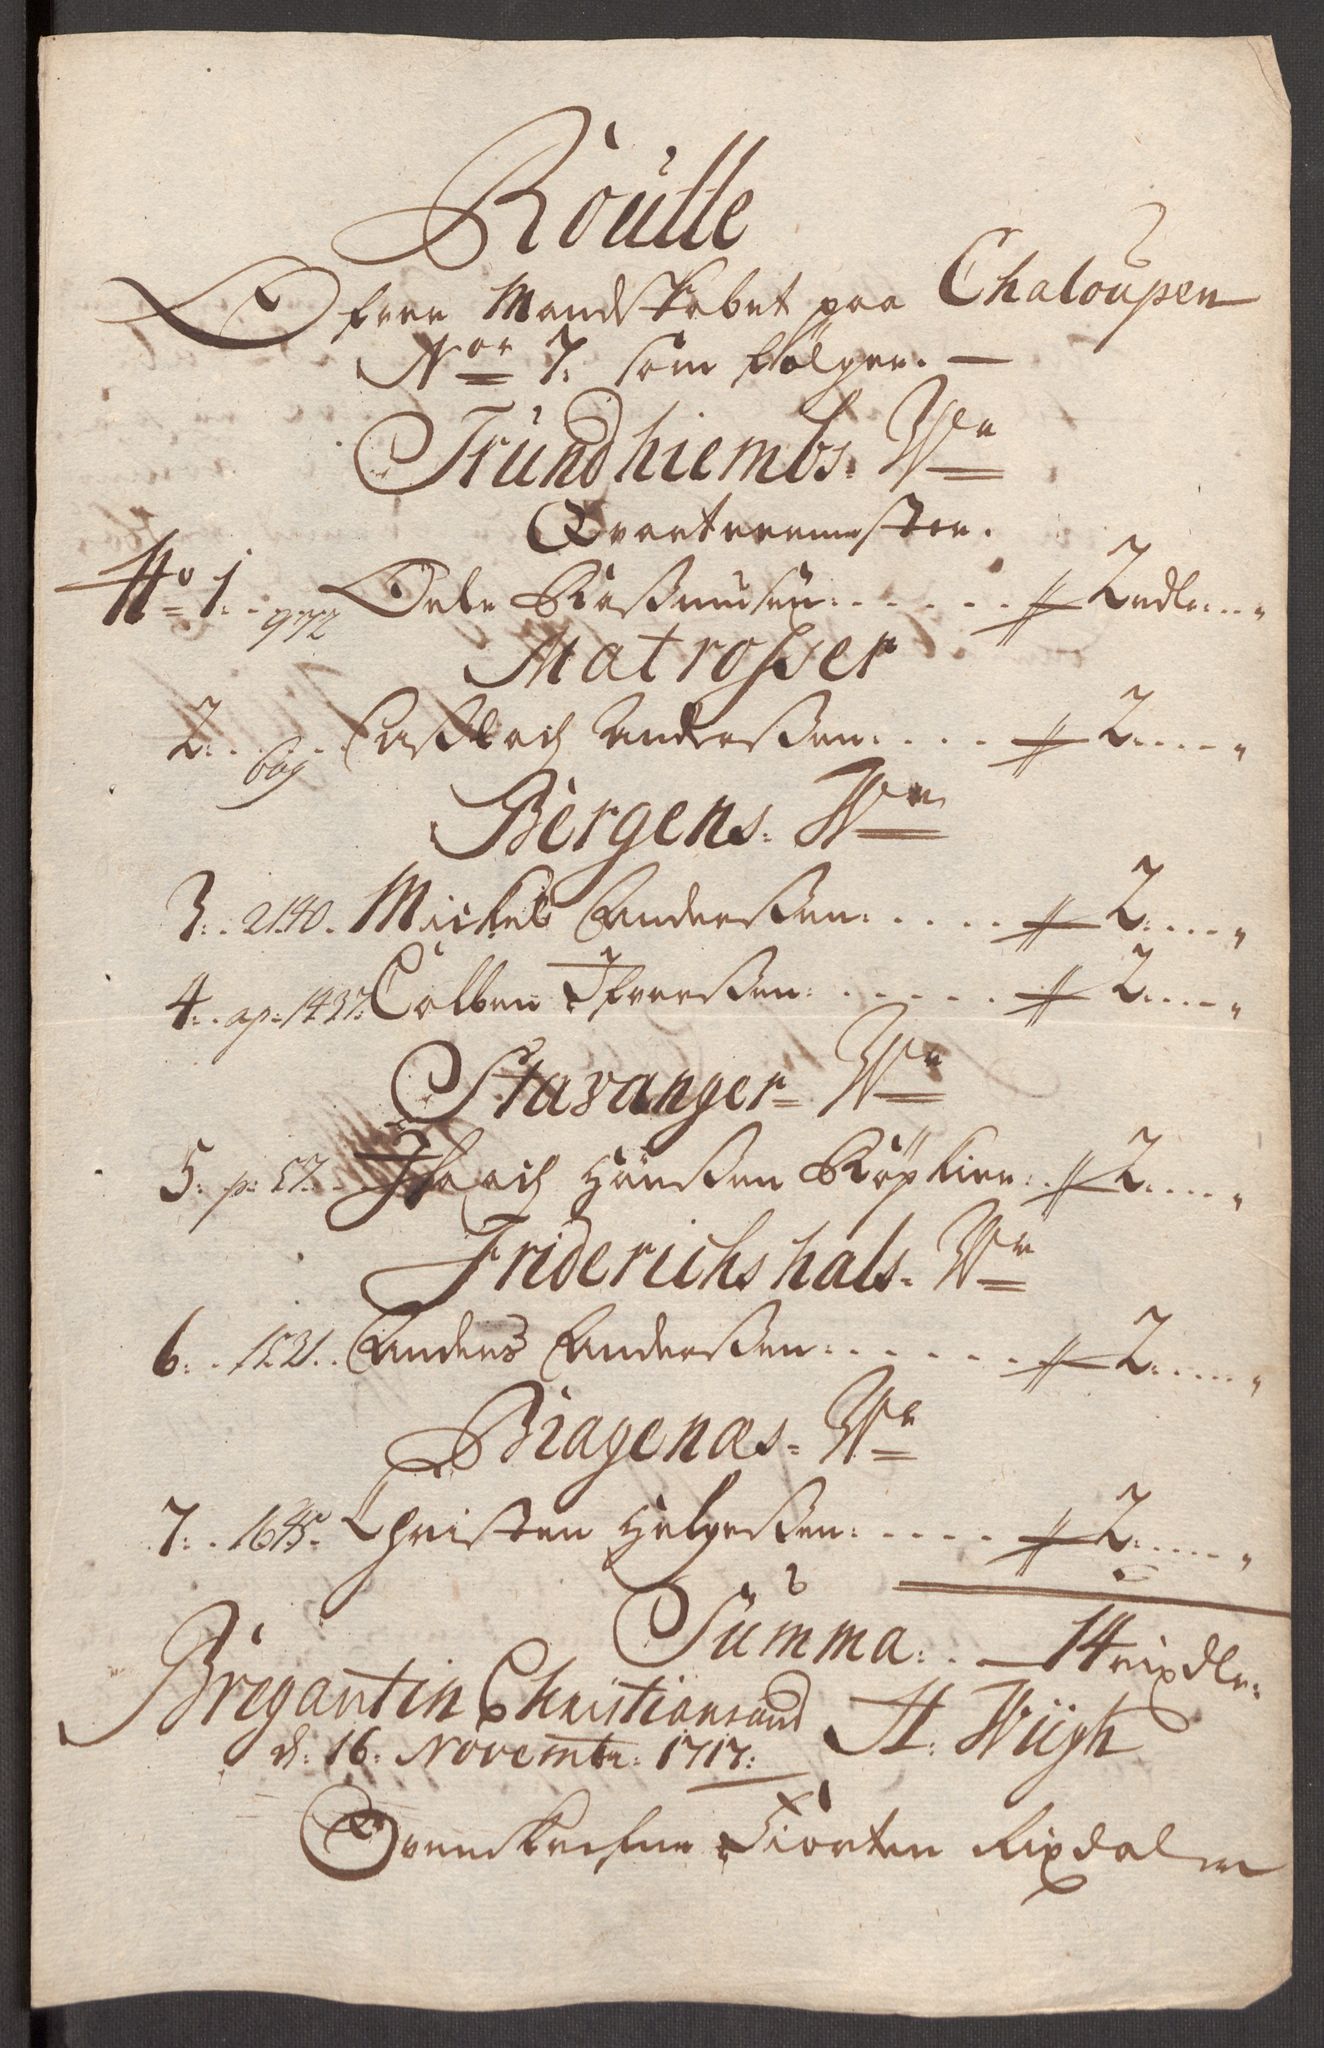 Roulle
Ofver Mandskabet paa Chaloupen
Nor 7. som fölger. —
Trundhiembs. Wr
Qvarteermester.
No 1. .. 972 Oele Rasmusen. . . . . . # 2 rdl. ... "
Matrosser
2. . . 609 . Anderssen. . . . . # 2. . . . . "
Bergens. Wr
3. . 2140. Michel Anderssen. . . . . # 2. . . . . "
4. . ap. 1437. Colben Ifverssen. . . . . . # 2. . . . . "
Stavanger Wr
5. p. 57. . Isaach Hanssen Kiöplier. . # 2. . . . . "
Friderichshals. Wr
6. . 1521. . Anders Anderssen. . . . . . # 2. . . . . "
Bragenæs. Wr
7. . 1645. Christen Helgessen. . . . . # 2. . . . . "
Summa. . — 14 rixdlr.
Bregantin Christiansand
d. 16. Novembr. 1717. H. Wiigh
Ovenskrefne Fiorten Rixdaler